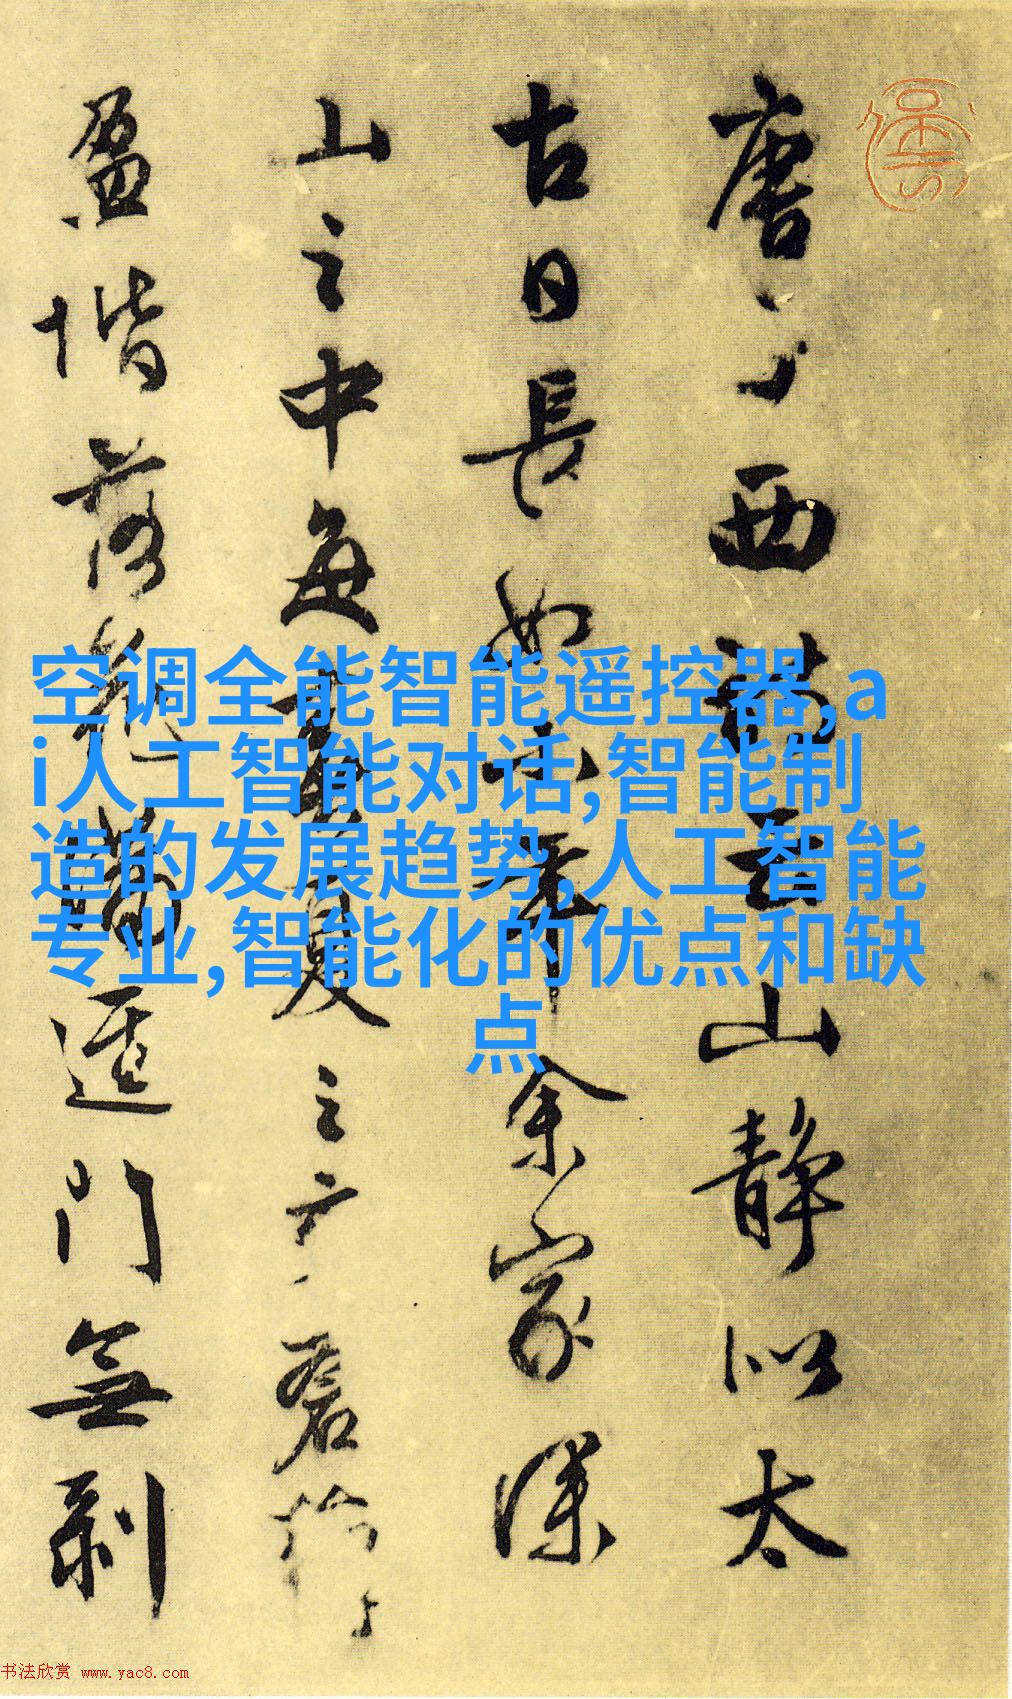 唐子西詩云山靜似太
古日長如小年余家深
山之中每春夏之交蒼蘚
盈堦落花滿逕門無剥
空调全能智能遥控器,a
i人工智能对话,智能制
造的发展趋势,人工智能
专业,智能化的优点和缺
点
书法欣赏 www.yac8.com